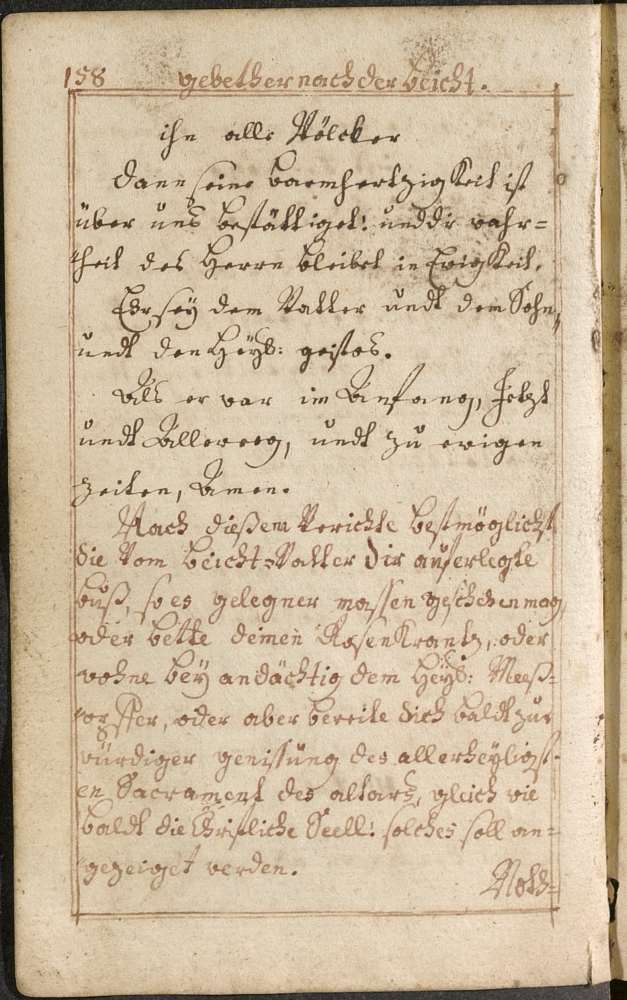 158 gebether nach der beicht.
ihn alle Völcker
Dann seine barmhertzigkeit ist
über uns bestättiget: undt die wahr=
heit des Herrn bleibet in Ewigkeit.
Ehr seÿ dem Vatter undt dem Sohn,
undt den Heÿl: geistes.
Als er war im Anfang, Jetzt
undt Alleweeg, undt zu ewigen
Zeiten, Amen.
Nach dießem Verichte bestmöglichst
die Vom beicht=Vatter dir auferlegte
buß, so es gelegner massen geschehen mag,
oder bette deinen Rosenkrantz, oder
wohne beÿ andächtig dem Heÿl: Meeß=
opffer, oder aber bereite dich baldt zur
würdiger genissung des allerheÿligst-
en Sacrament des altars, gleich wie
baldt die Christliche Seell: solches soll an=
gezeiget werden.